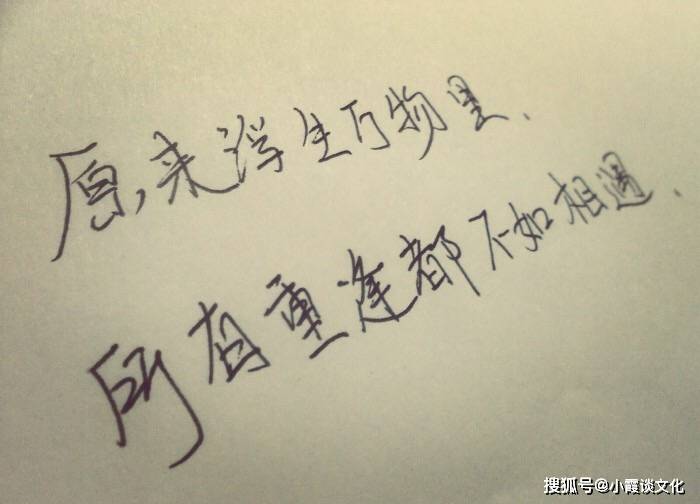 原来浮生万物里.
所有重逢都不如相遇.
搜狐号@小霞谈文化